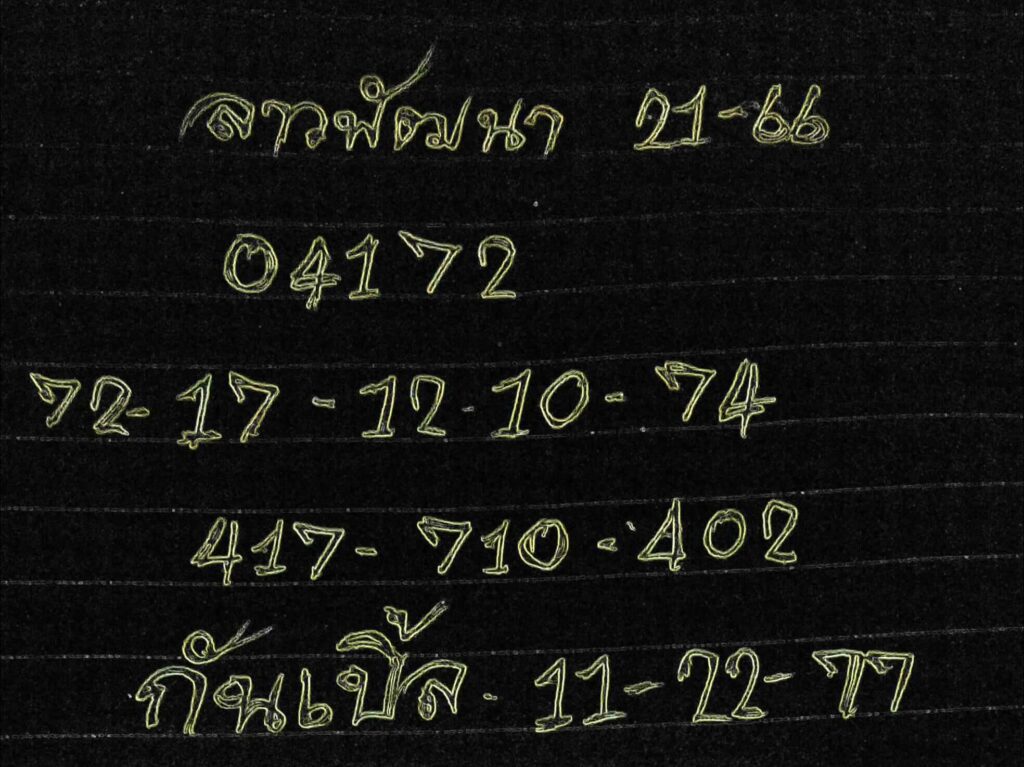 ลาวพัฒนา 21-66
04172
72-17-12-10-74
417-710-402
กันเบิ้ล-11-22-77